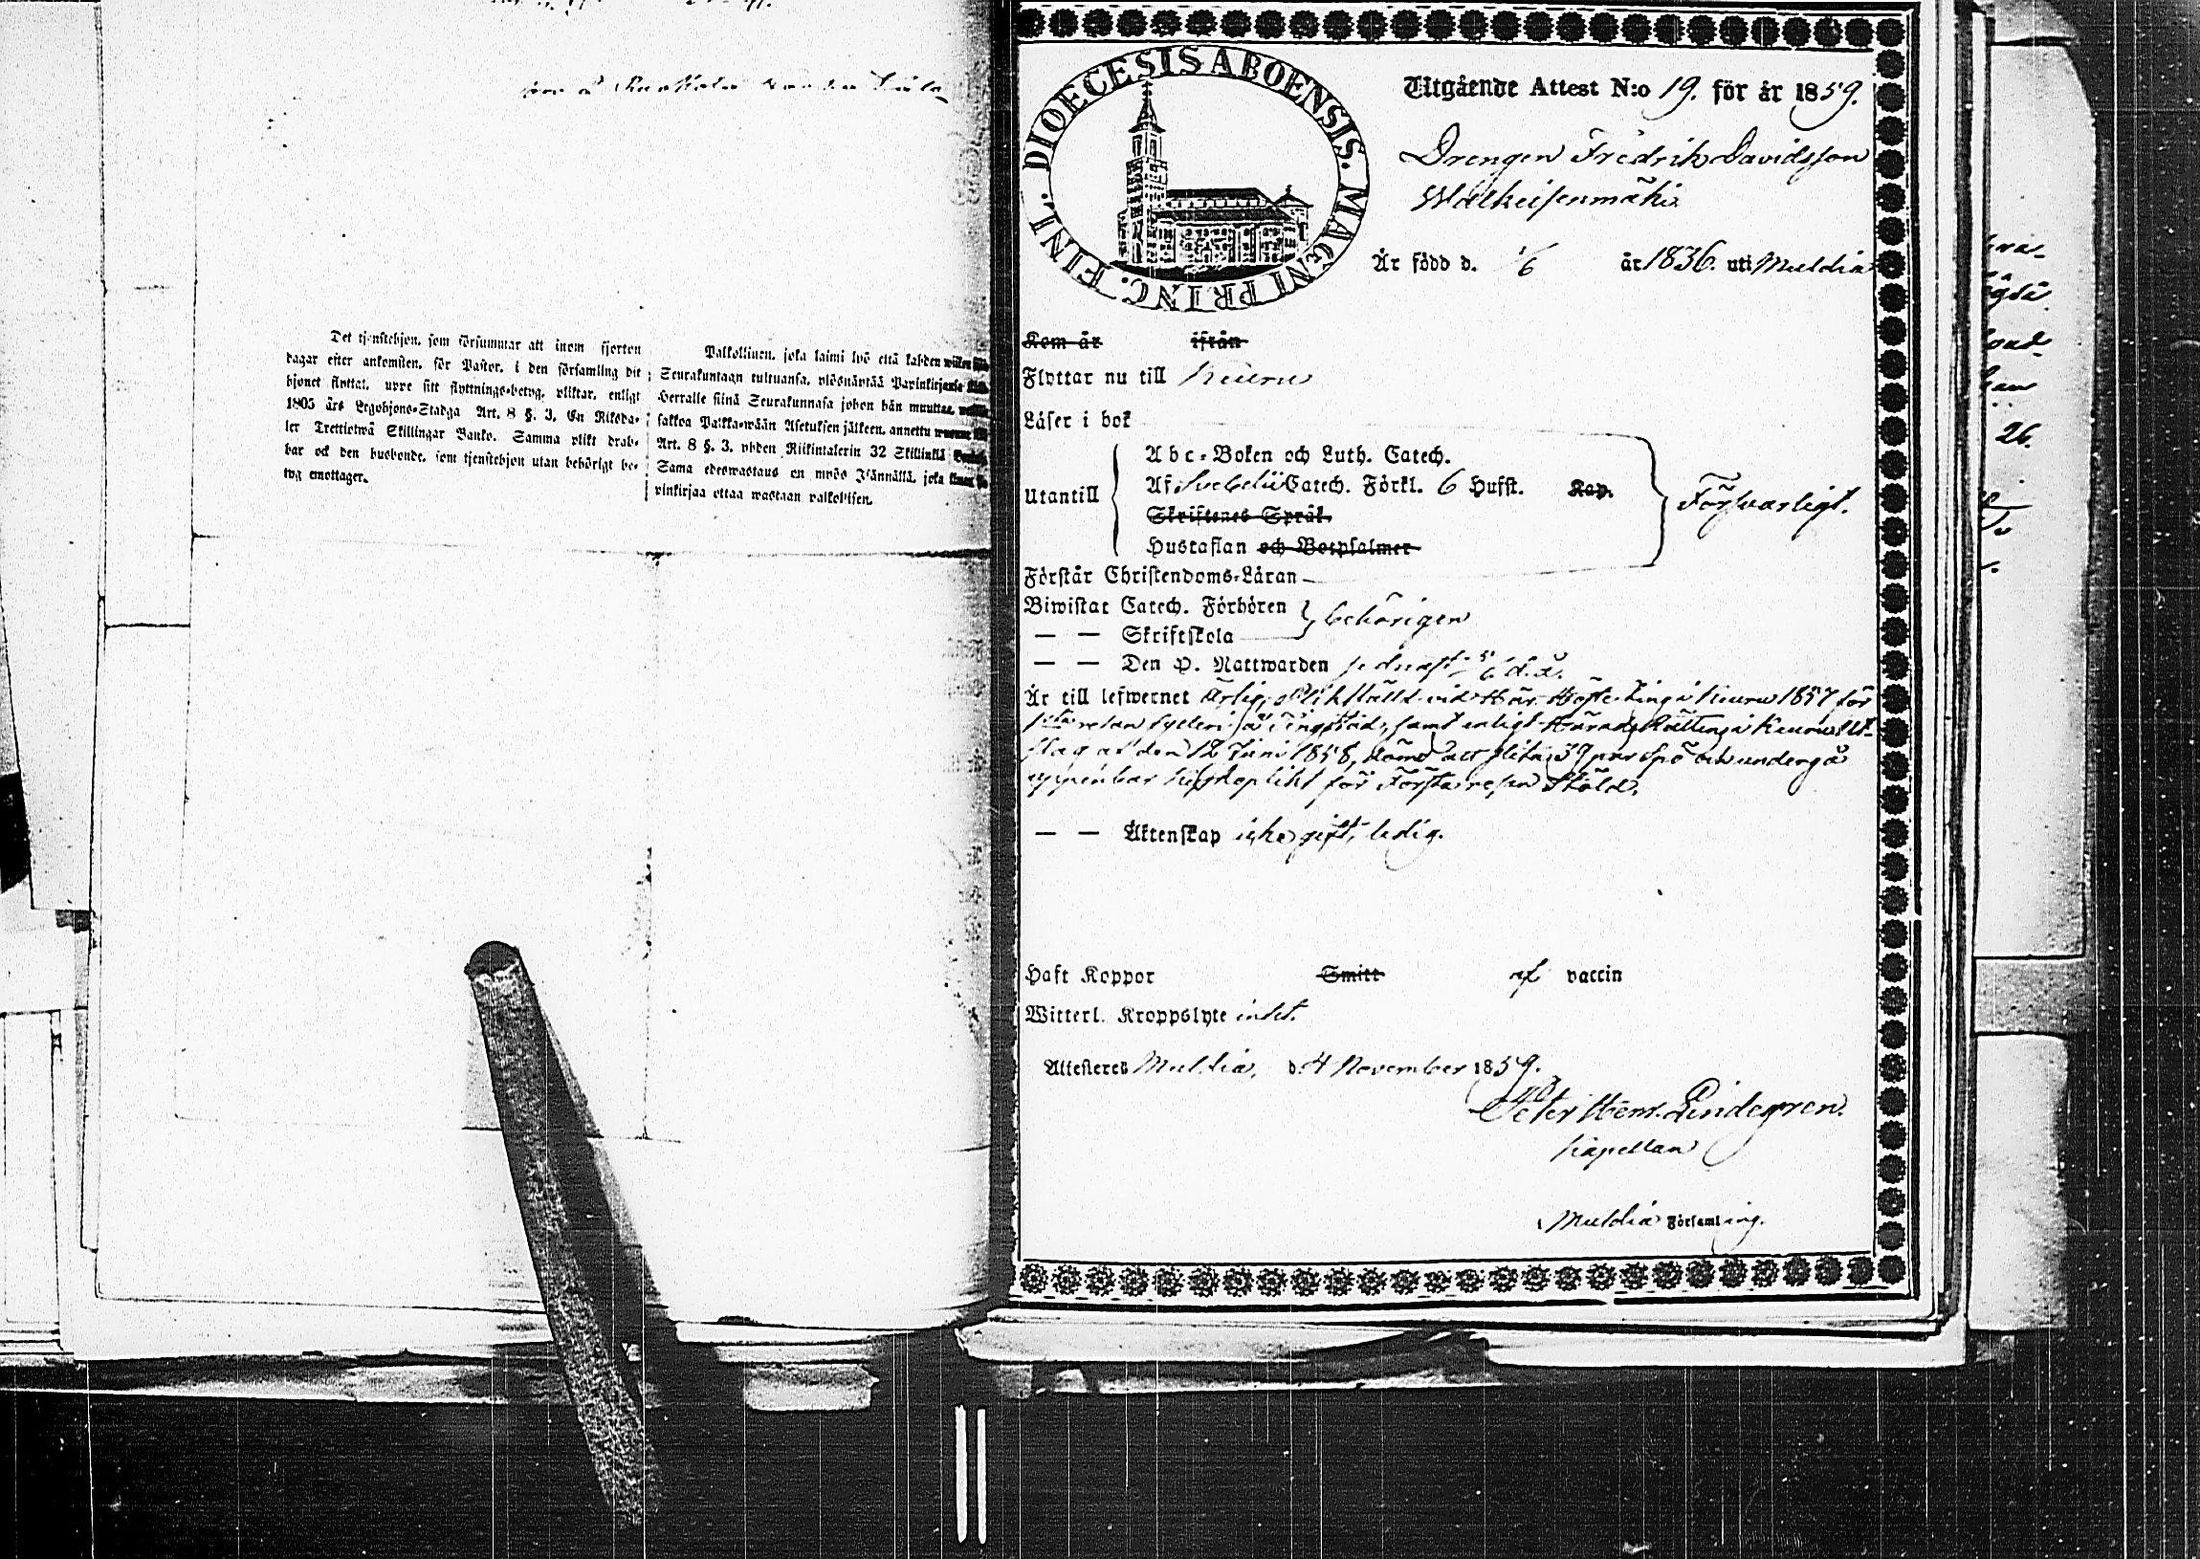 Det tjenstehjon, som försummar att inom fjorton
dagar efter ankomsten, för Pastor, i den församling dit
hjonet flyttat, uppe sitt flyttnings-betyg, pliktar, enligt
1805 års Legohjons-Stadga Art. 8 §. 3. En Riksda-
ler Trettiotwå Skillingar Banko. Samma plikt drab-
bar ock den husbonde, som tjenstehjon utan behörigt be-
tyg emottager.
Palkollinen, joka laimi lyö että kahden
Seurakuntaan tultuansa, ylösnäyttää Papinkirjansa
Herralle siinä Seurakunnasa johon hän muuttaa,
sakkoa Palkka-wään Asetuksen jälkeen, annettu
Art. 8 §. 3. yhden Riikintalerin 32 Skillinkiä
Sama edeswastaus on myös Isännällä, joka
pinkirjaa ottaa wastaan palkollisen.
DIOECESIS ABOENSIS. MAGNI PRINC. FINL.
Utgående Attest N:o 19. för år 1859.
Drengen Fredrik Davidsson
Walkeisenmäki
Är född d. 1/6 år 1836. uti Muldia
Kom år ifrån
Flyttar nu till Keuru
Läser i bok
Utantill
Abc-Boken och Luth. Catech.
Af Svebelii Catech. Förkl. 6 Hufst. Kap.
Skriftenes Språk.
Hustaflan och Botpsalmer
Försvarligt.
Förstår Christendoms-Läran
Biwistat Catech. Förhören
— — Skriftskola
behörigen
— — Den H. Nattwarden sednast 5/6 d. å.
Är till lefwernet Ärlig, Pliktfälld vid Här. Höste Ting i Keuru 1857 för
resan fylleri å Tingstad, samt enligt Härads Rättens i Keuru Ut-
slag af den 12 Juni 1858, dömd att slita 39 par spö och undergå
uppenbar kyrkoplikt för Första resan Stöld.
— — Äktenskap icke gift, ledig.
Haft Koppor Smitt af vaccin
Witterl. Kroppslyte intet.
Attesteres Muldia, d. 4 November 1859.
Peter Henr. Lindegren.
Kapellan
Muldia Församling.
26.